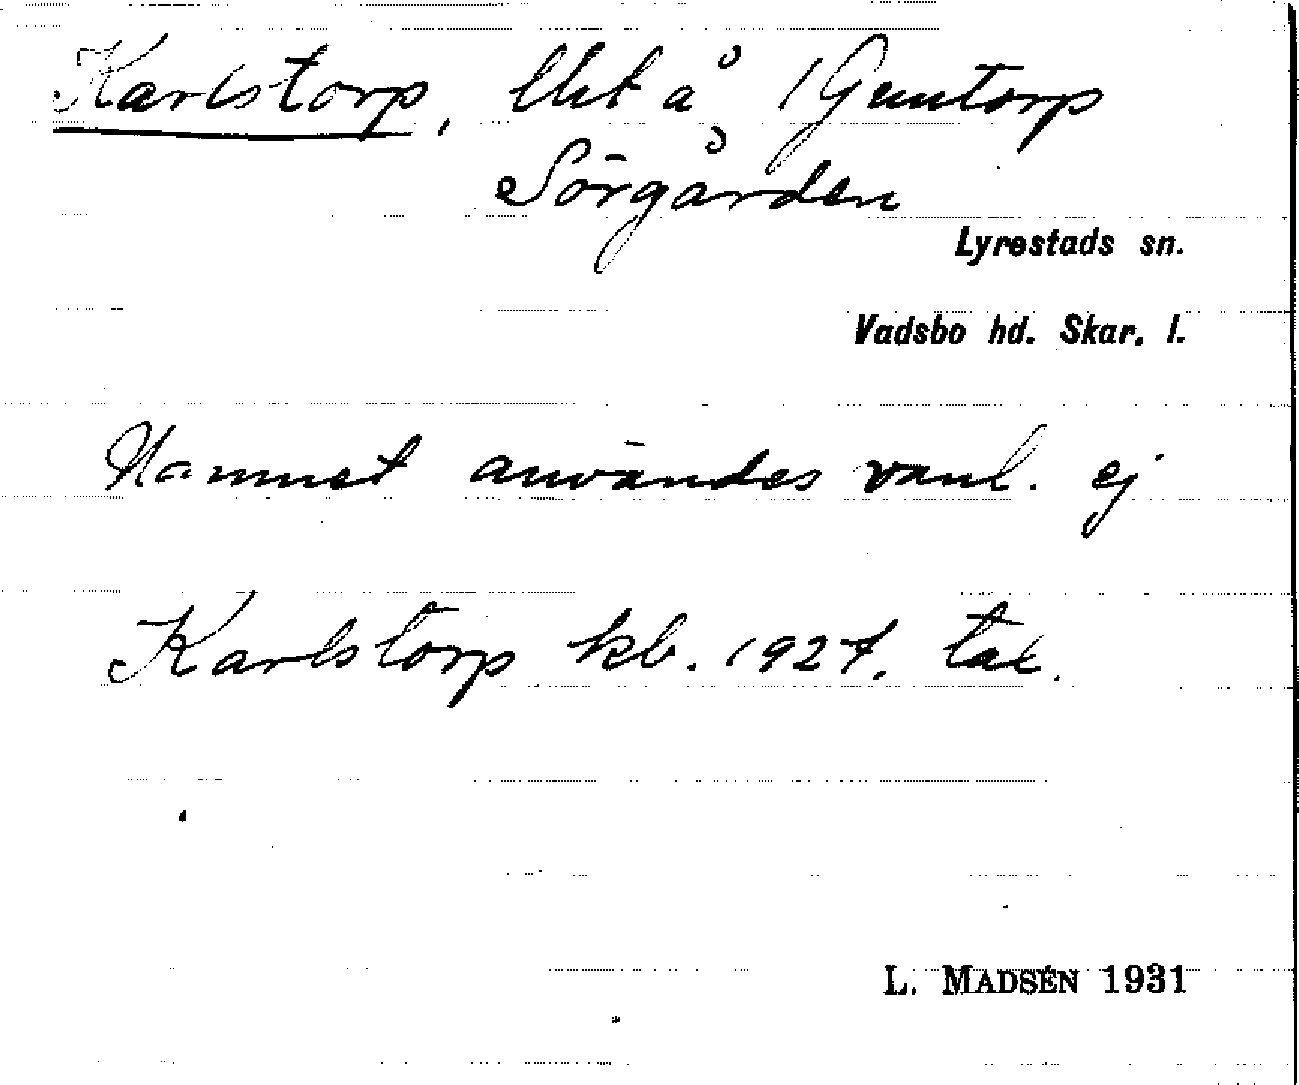 Karlstorp, lht å 1 Guntorp
Sörgården
Lyrestads sn.
Vadsbo hd. Skar. l.
Namnet användes vanl. ej
Karlstorp kb. 1927.
L. MADSÉN 1931